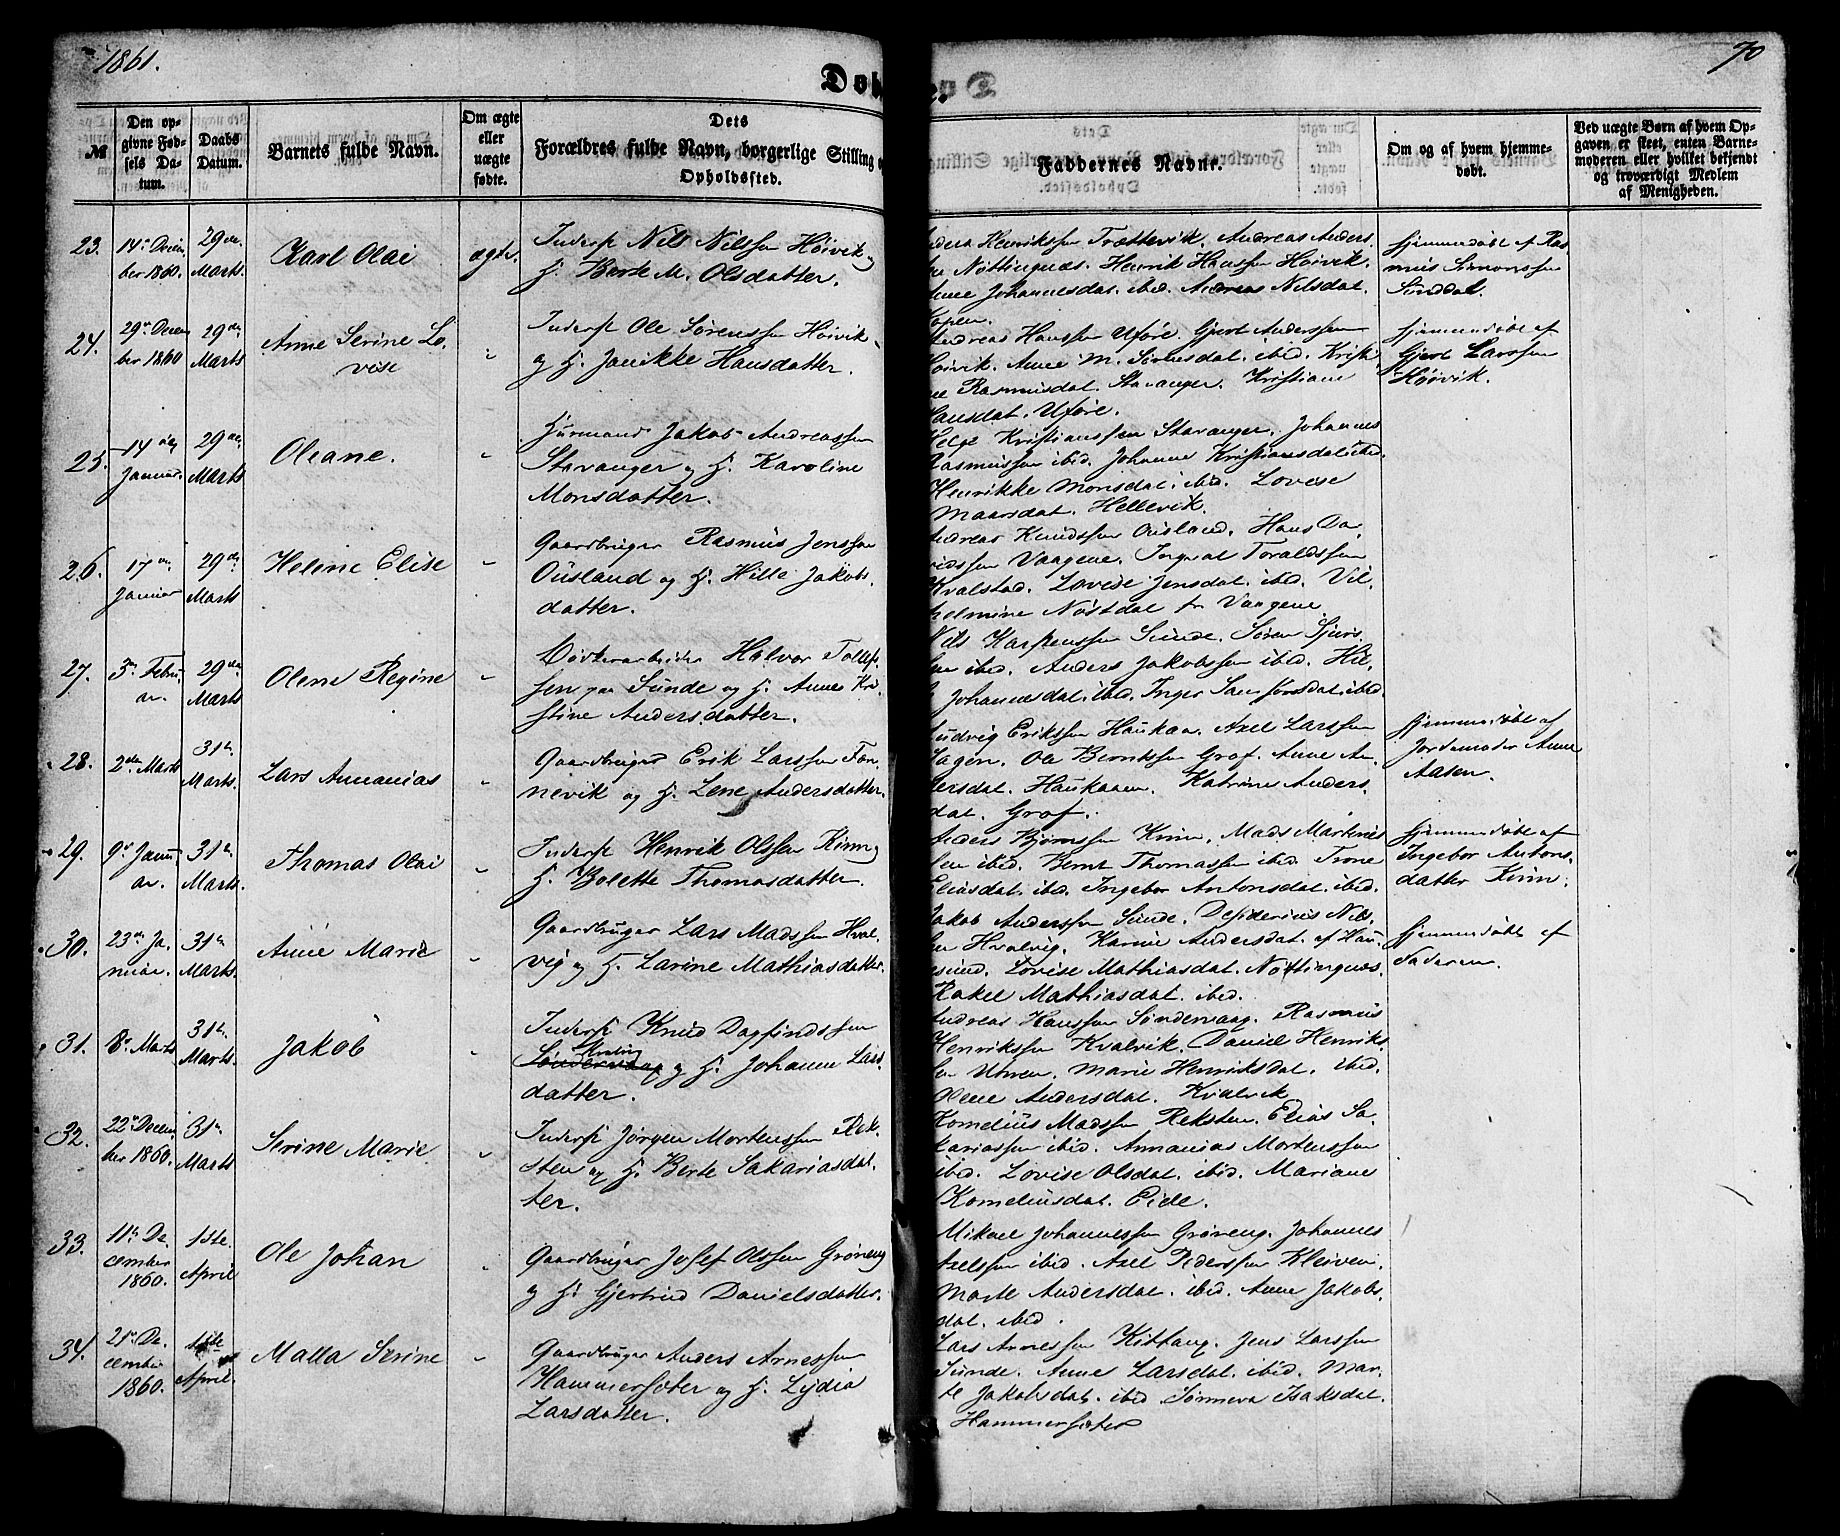 1861.
70
Døb
e.
№
Den op-
givne Fød-
sels Da-
tum.
Daabs
Datum.
Barnets fulde Navn.
Om ægte
eller
uægte
fødte.
Dets
Forældres fulde Navn, borgerlige Stilling o
Opholdssted.
Faddernes Navne.
Om og af hvem hjemme-
døbt.
Ved uægte Børn af hvem Op-
gaven er skeet, enten Barne-
moderen eller hvilket bekjendt
og troværdigt Medlem
af Menigheden.
23.
14de Decem
ber 1860.
29de
Marts.
Karl Olai
ægte.
Inderst Nils Nilssen Höivik og
H. Berte M. Olsdatter.
Henrikssen Trættevik. Andreas Anders
Nøttingnæs. Henrik Hanssen Höivik.
Johannesdat. ibid. Andrea Nilsdat.
Hjemmedøbt af Ras
mus Simonssen
24.
29de Decem
ber 1860
29de
Marts
Anne Serine Lo-
vise
Inderst Ole Sørenssen Höivik
og H. Janikke Hansdatter.
Andreas Hanssen Uføre. Gjert Anderssen
Höivik. Anne M. Sørensdat. ibid. Kristi
ne Rasmusdat. Stavanger. Kristiane
Hansdat. Uføre.
Hjemmedøbt af
Gjert Larssen
Höivik.
25.
14de
Januar.
29de
Marts
Oleane.
Huusmand Jakob Andreassen
Stavanger og H. Karoline
Monsdatter.
Helge Kristianssen Stavanger. Johannes
Rasmussen ibid. Johanne Kristiansdat ibid.
Henrikke Monsdat. ibid. Lovise
Hellevik.
26.
17de
Januar
29de
Marts
Heline Elise
Gaardbruger Rasmus Jenssen
Ousland og H. Hille Jakobs-
datter.
Andreas Knudssen Ousland. Hans Da
vidssen Vaagene. Ingvat Toraldssen
Kvalstad. Lovise Jensdat. ibid. Vil-
helmine Vaagene
27.
3de Febru
ar.
29de
Marts
Olene Regine
Bødkerarbeider Halvor Tollef-
sen paa Sunde og H. Anne Kri-
stine Andersdatter.
Nils Karstenssen Sunde. Søren Sjurs
sen ibid. Anders Jakobssen ibid. Hil-
Johannesdat. ibid. Inger ibid.
28.
2den Marts
31te
Marts.
Lars Annanias
Gaardbruger Erik Larssen Fan-
nevik og H. Lene Andersdatter.
Ludvig Erikssen Haukaa. Axel Larssen
Hagen. Ole Berntssen Grof. Anne An-
dersdat. Haukaaen. Katrine Anders
dat. Grof.
Hjemmedøbt af
Jordemoder Anne
Aasen.
29.
9de Janu
ar.
31te
Marts.
Thomas Olai
Inderst Henrik Olssen Kinn og
H. Bolette Thomasdatter.
Anders Bjørnssen Kinn. Mads Markus
sen ibid. Bernt Thomassen ibid. Trone
Eliasdat. ibid. Ingebor Antonsdat. ibid.
Hjemmedøbt af
Ingebor Antons-
datter Kinn.
30.
23de Ja-
nuar.
31te
Marts.
Anne Marie
Gaardbruger Lars Madssen Hval-
vig og H. Larine Mathiasdatter.
Jakob Anderssen Sunde. Desiderius Nils
sen Hvalvig. Karine Andersdat. af Hau-
gesund. Lovise Mathiasdat. Nøttingnæs.
Rakel Mathiasdat. ibid.
Hjemmedøbt af
Faderen.
31.
8de Marts
31te
Marts.
Jakob
Inderst Knud Dagfindssen
Kvalvig
Søndervaag og H. Johanne Lars
datter.
Andreas Hanssen Søndervaag. Rasmus
Henrikssen Kvalvik. Daniel Henriks-
sen Marie Henriksdat. ibid.
Olene Andersdat. Kvalvik
32.
22de Decem
ber 1860.
31te
Marts
Serine Marie
Inderst Jørgen Mortenssen Rek-
sten og H. Berte Sakariasdat-
ter.
Kornelius Madssen Reksten. Elias Sa-
kariassen ibid. Annanias Mortenssen
ibid. Lovise Olsdat. ibid. Mariane
Korneliusdat. Eide.
33.
11te De
cember
1860.
1ste
April
Ole Johan
Gaardbruger Josef Olssen Grøneng
og H. Gjertrud Danielsdatter.
Mikael Johannessen Grøneng. Johannes
Axelssen ibid. Axel Pederssen Kleiven.
Marte Andersdat. ibid. Anne Jakobs-
dat. ibid.
34.
21de De
cember
1860.
1ste
April.
Malla Serine
Gaardbruger Anders Arnessen
Hammersæter og H. Lydia
Larsdatter.
Lars Arnessen Kittang. Jens Larssen
Sunde. Anne Larsdat. ibid. Mar-
te Jakobsdat. ibid Sønneva Isaksdat.
Hammersæter